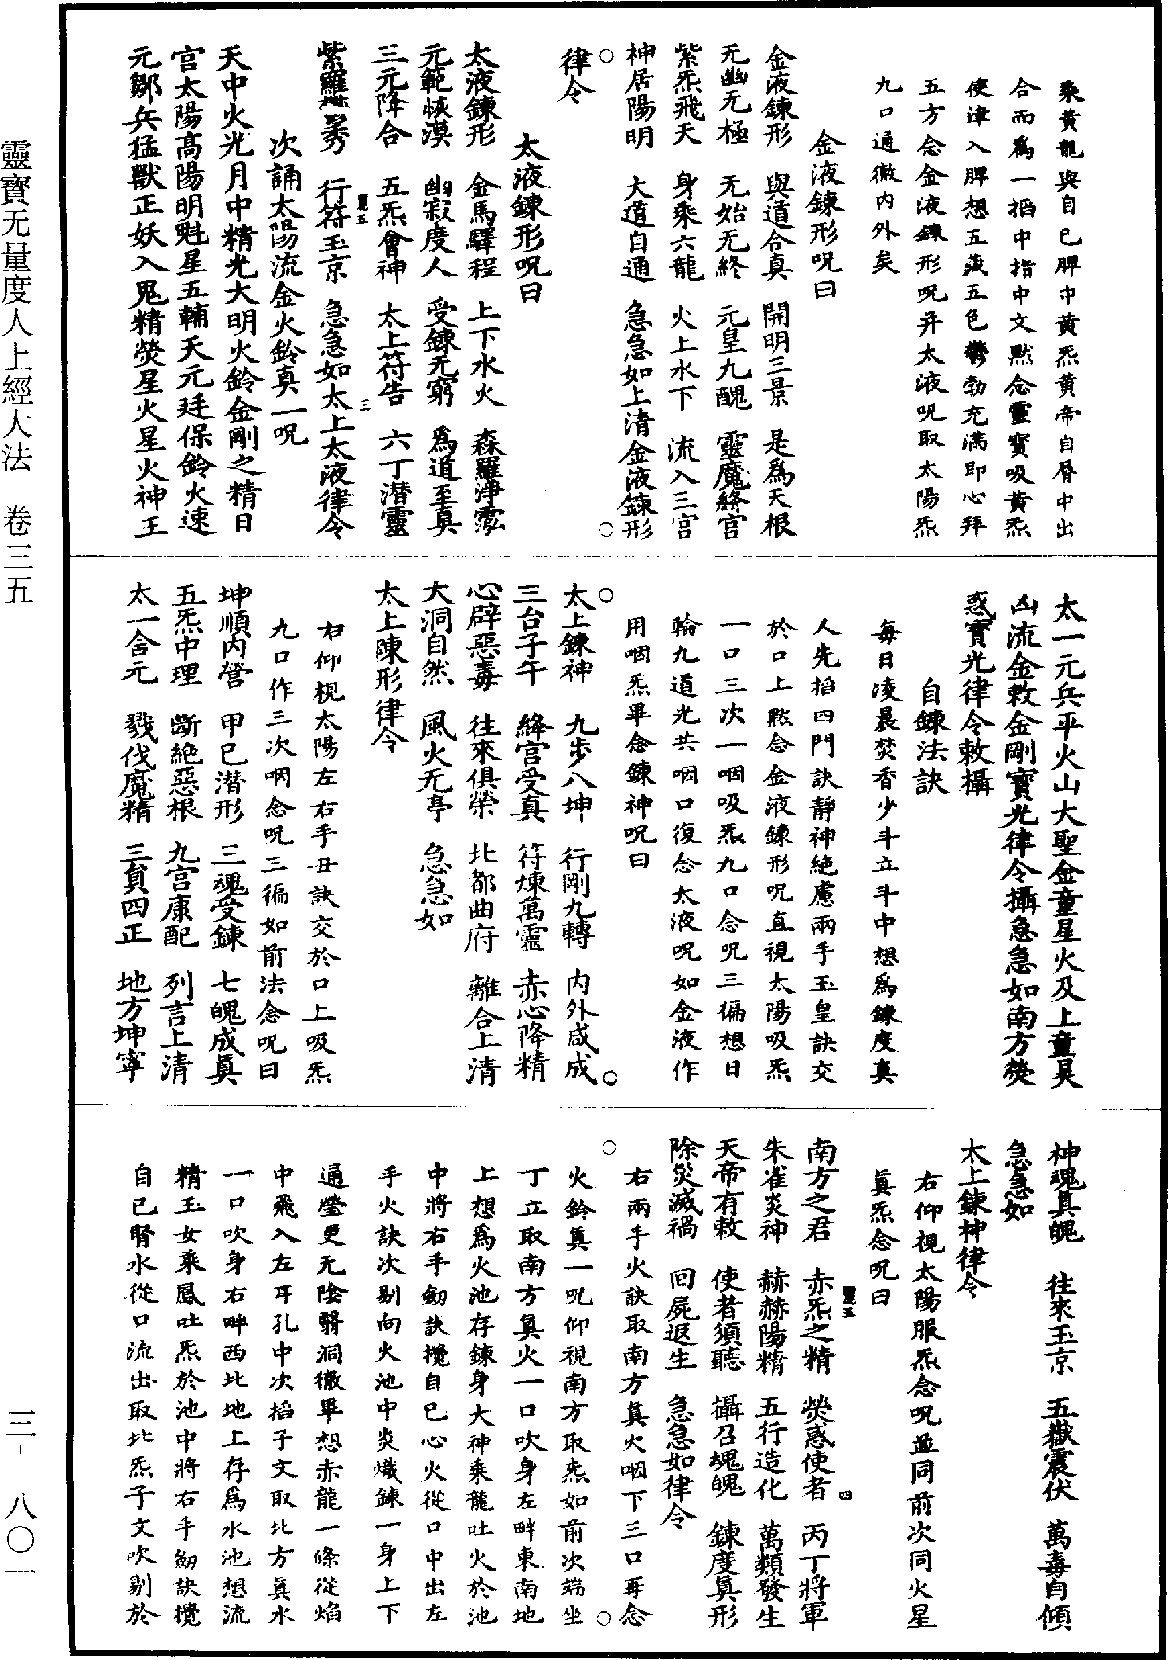 乘黃龍與自己脾中黃炁黃帝自唇中出
合而爲一掐中指中文默念靈寶吸黃炁
使津入脾想五藏五色鬱勃充滿即心拜
五方念金液鍊形呪并太液呪取太陽炁
九口通徹内外矣
金液鍊形呪曰
金液鍊形 與道合真 開明三景 是爲天根
无幽无極 无始无終 元皇九醜 靈魔絳官
紫炁飛天 身乘六龍 火上水下 流入三宫
神居陽明 大道自通 急急如上清金液鍊形
律令
太液鍊形呪曰
太液鍊形 金馬驛程 上下水火 森羅淨霐
元範恢漠 幽寂度人 受鍊无窮 爲道至真
三元降合 五炁會神 太上符告 六丁潛靈
紫羅鬱秀 行符玉京 急急如太上太液律令
次誦太陽流金火鈴真一呪
天中火光月中精光大明火鈴金剛之精日
官太陽高陽明魁星五輔天元廷保鈴火速
元鄒兵猛獸正妖入鬼精熒星火星火神王
太一元兵平火山大聖金童星火及上童具
凶流金敕金剛寶光律令攝急急如南方熒
惑寶光律令敕攝
自鍊法訣
每日凌晨焚香少斗立斗中想爲鍊度真
人先掐四門訣靜神絶慮兩手玉皇訣交
於口上默念金液鍊形呪直視太陽吸炁
一口三次一咽吸炁九口念呪三徧想日
輪九道光共咽口復念太液呪如金液作
用咽炁畢念鍊神呪曰
太上鍊神 九步八坤 行剛九轉 内外咸成
三台子午 絳宫受真 符煉萬靈 赤心降精
心辟惡毒 往來俱榮 北都曲府 離合上清
大洞自然 風火无亭 急急如
太上陳形律令
右仰視太陽左右手丑訣交於口上吸炁
九口作三次咽念呪三徧如前法念呪曰
坤順内營 甲已潛形 三魂受鍊 七魄成真
五炁中理 斷絶惡根 九宫康配 列言上清
太一合元 戮伐魔精 三負四正 地方坤寧
神魂真魄 往來玉京 五嶽震伏 萬毒自傾
急急如
太上鍊神律令
右仰視太陽服炁念呪並同前次同火星
真炁念呪曰
南方之君 赤炁之精 熒惑使者 丙丁將軍
朱雀炎神 赫赫陽精 五行造化 萬類發生
天帝有敕 使者須聽 攝召魂魄 鍊度真形
除災滅禍 回屍返生 急急如律令
右兩手火訣取南方真火咽下三口再念
火鈴真一呪仰視南方取炁如前次端坐
丁立取南方真火一口吹身左畔東南地
上想爲火池存鍊身大神乘龍吐火於池
中將右手劒訣攪自己心火從口中出左
手火訣次剔向火池中炎熾鍊一身上下
通瑩更无陰翳洞徹畢想赤龍一條從焰
中飛入左耳孔中次掐子文取北方真水
一口吹身右畔西北地上存爲水池想流
精玉女乘鳳吐炁於池中將右手劒訣攪
自己腎水從口流出取北炁子文吹剔於
靈寶无量度人上經大法 卷三五
三-八〇一